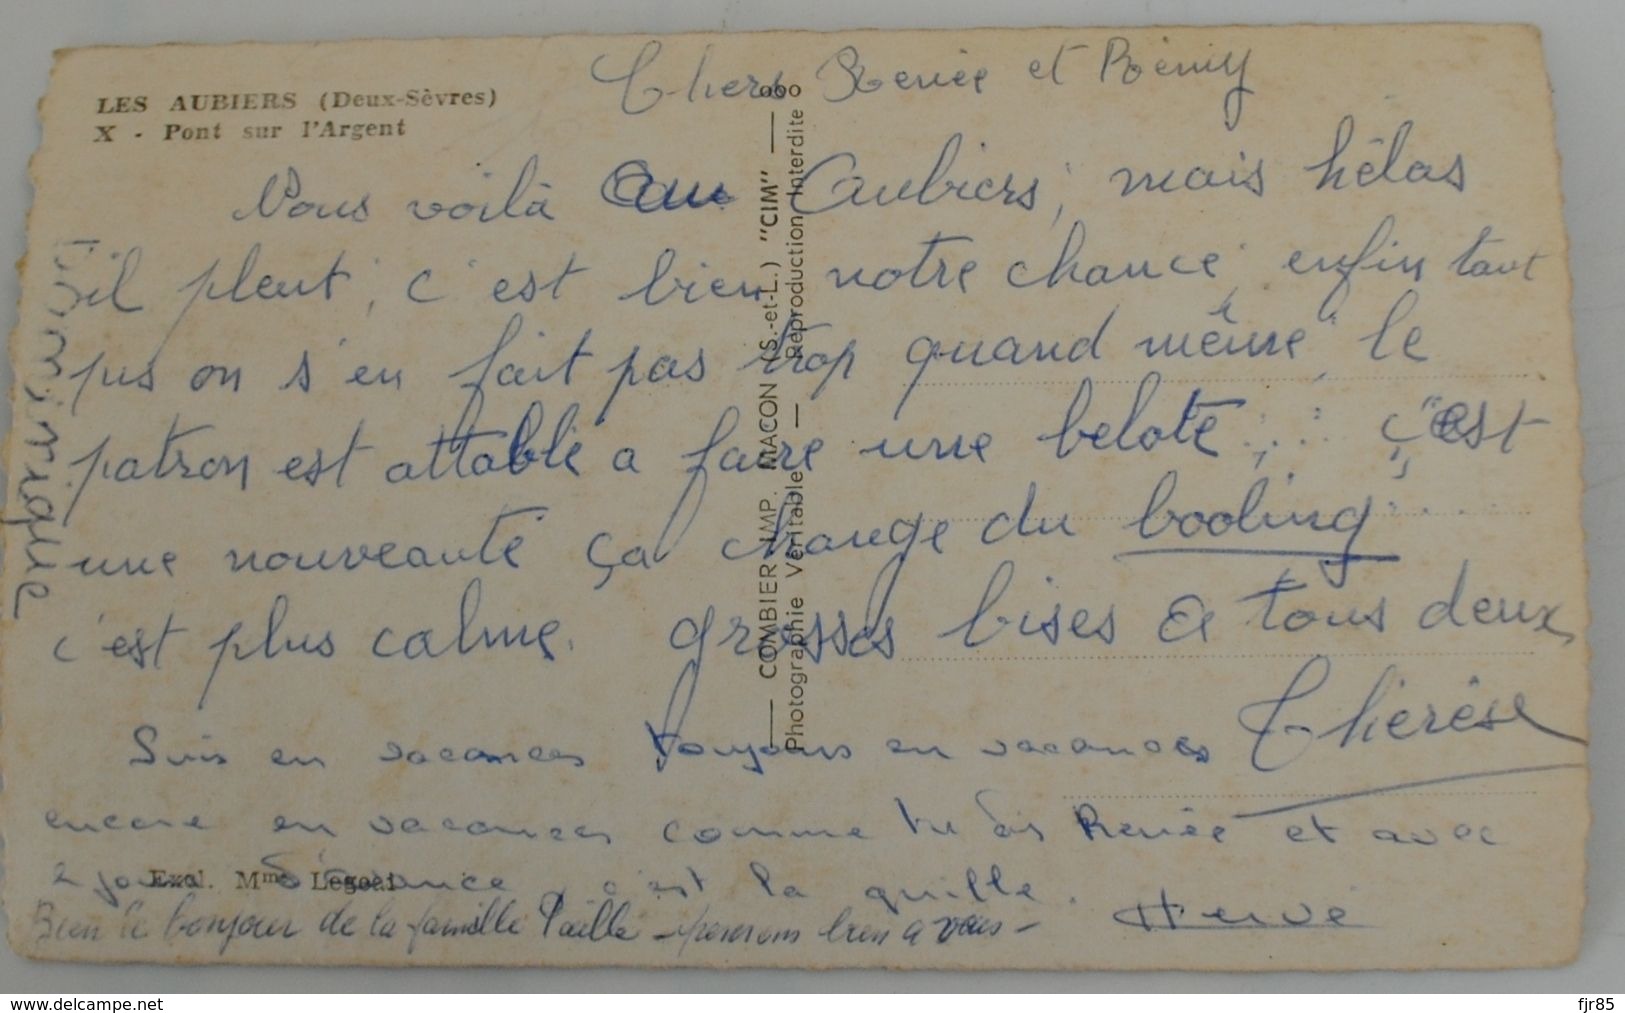 LES AUBIERS (Deux-Sèvres)
X - Pont sur l'Argent
Chers Renée et Rémy
Nous voilà au Caubiers, mais hélas
il pleut, c'est bien notre chance, enfin tant
pis on s'en fait pas trop quand même, le
patron est attablé a faire une belote, c'est
une nouveauté ça change du booling
c'est plus calme. grosses bises a tous deux
Thérèse
Suis en vacances toujours en vacances
encore en vacances comme tu dis Renée et avec
2 jours d'avance, c'est la quille.
Hervé
Bien le bonjour de la famille Paillé - pensons bien a vous -
Dominique
Excl. Mme Legeai
COMBIER IMP. MACON (S.-et-L.) "CIM"
Photographie Véritable — Reproduction Interdite
www.delcampe.net
fjr85